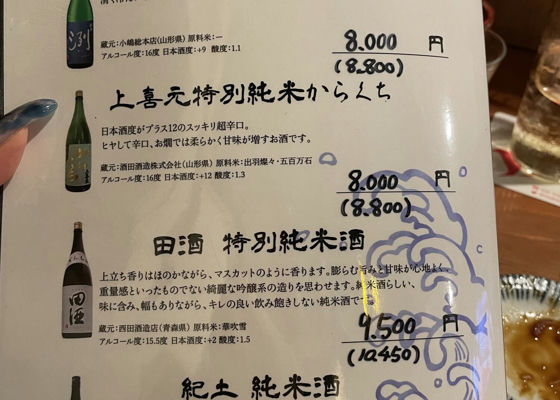 蔵元：小嶋総本店(山形県) 原料米：ー
アルコール度：16度 日本酒度：+9 酸度：1.1
8.000 円
(8.800)
上喜元特別純米からくち
日本酒度がプラス12のスッキリ超辛口。
ヒヤして辛口、お燗では柔らかく甘味が増すお酒です。
蔵元：酒田酒造株式会社(山形県) 原料米：出羽燦々・五百万石
アルコール度：16度 日本酒度：+12 酸度：1.3
8.000 円
(8.800)
田酒 特別純米酒
上立ち香りはほのかながら、マスカットのように香ります。膨らむ旨みと甘味が心地よく、
重量感といったものでない綺麗な吟醸系の造りを思わせます。純米酒らしい、
味に含み、幅もありながら、キレの良い飲み飽きしない純米酒です。
蔵元：西田酒造店(青森県) 原料米：華吹雪
アルコール度：15.5度 日本酒度：+2 酸度：1.5
9.500 円
(10.450)
紀土 純米酒
田酒